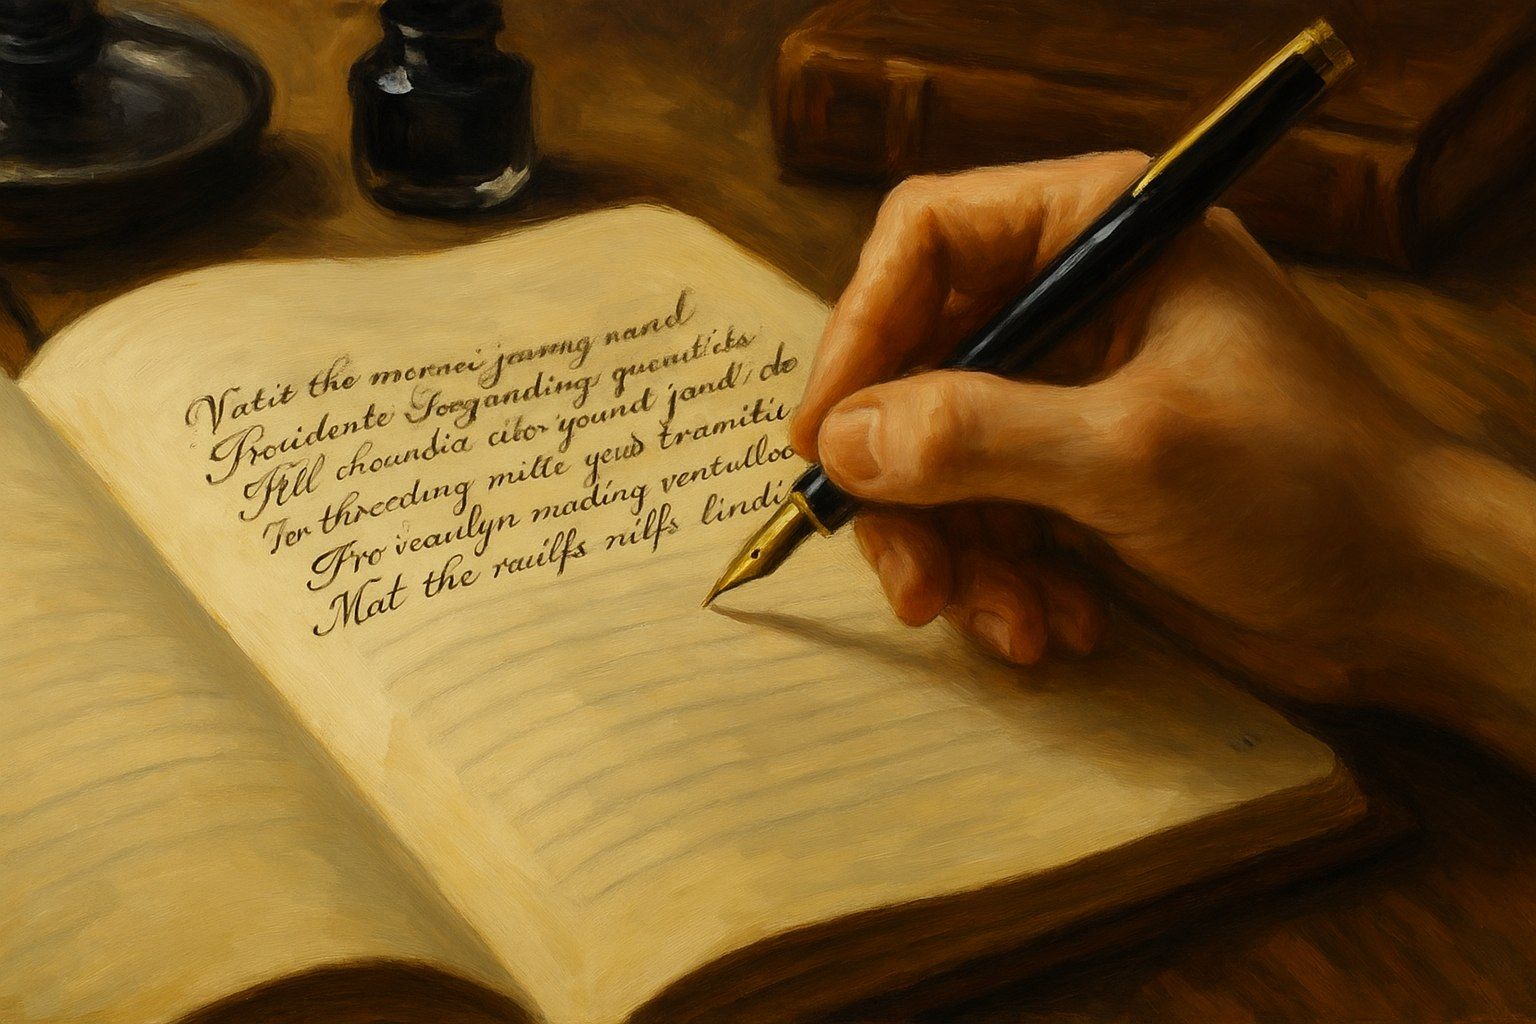 Vatit the mornei jawmng nand
Providente Goeganding quentícts
Fill choundia citor yound jand, do
Ter threedıng mitte yeus tramitic
Fro veaulyn mading ventulloo
Mat the rauilfs nilfs lindi